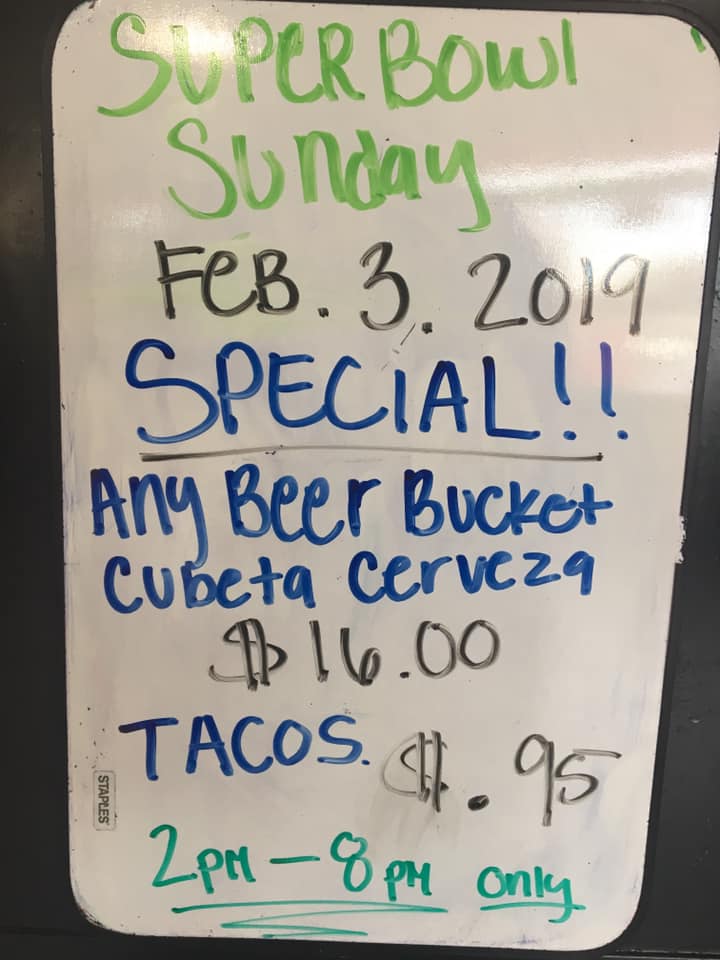 SUPER BOWl
Sunday
FEB. 3. 2019
SPECIAL!!
Any Beer Bucket
Cubeta Cerveza
$16.00
TACOS. $.95
STAPLES
2PM - 8PM only